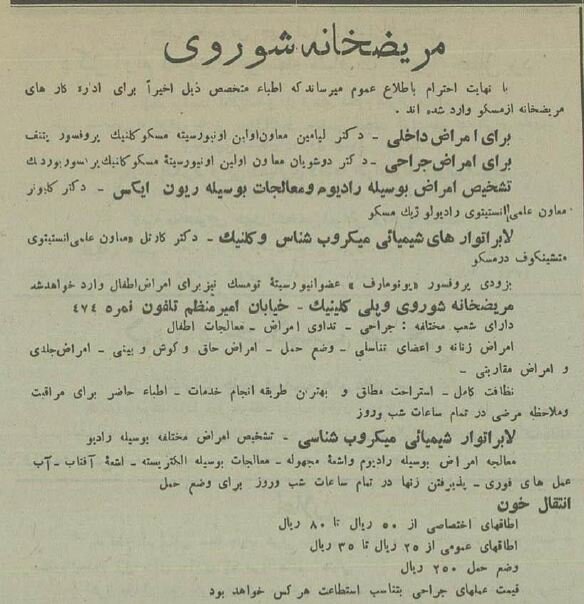 مریضخانه شوروی
با نهایت احترام باطلاع عموم میرساند که اطباء متخصص ذیل اخیراً برای اداره کار های
مریضخانه ازمسکو وارد شده اند .
برای امراض داخلی - دکتر لیامین معاون اولین اونیورسیته مسکو کلنیك پروفسور پتنف
برای امراض جراحی - دکتر دوشویان معاون اولین اونیورسیتهٔ مسکو کلنیك پرفسور بوردنك
تشخیص امراض بوسیله رادیوم ومعالجات بوسیله ریون ایکس - دکتر کابونر
معاون علمی انستیتوی رادیولوژیك مسکو
لابراتوار های شیمیائی میکروب شناس وکلنیك - دکتر کارتل «معاون علمی انستیتوی
متشینکوف درمسکو
بزودی پروفسور «بونومارف» عضو انیورسیتهٔ تومسك نیز برای امراض اطفال وارد خواهد شد
مریضخانه شوروی وپلی کلینیك - خیابان امیر منظم تلفون نمره ۴۷۴
دارای شعب مختلفه : جراحی - تداوی امراض - معالجات اطفال
امراض زنانه و اعضای تناسلی - وضع حمل - امراض حلق و گوش و بینی - امراض جلدی
و امراض مقاربتی -
نظافت کامل - استراحت مطلق و بهترین طریقه انجام خدمات - اطباء حاضر برای مراقبت
وملاحظه مرضی در تمام ساعات شب وروز
لابراتوار شیمیائی میکروب شناسی - تشخیص امراض مختلفه بوسیله رادیو
معالجه امراض بوسیله رادیوم واشعهٔ مجهوله - معالجات بوسیله الکتریسته - اشعهٔ آفتاب - آب
عمل های فوری - پذیرفتن زنها در تمام ساعات شب وروز برای وضع حمل
انتقال خون
اطاقهای اختصاصی از ۵۰ ریال تا ۸۰ ریال
اطاقهای عمومی از ۲۵ ریال تا ۳۵ ریال
وضع حمل ۲۵۰ ریال
قیمت عملهای جراحی بتناسب استطاعت هر کس خواهد بود